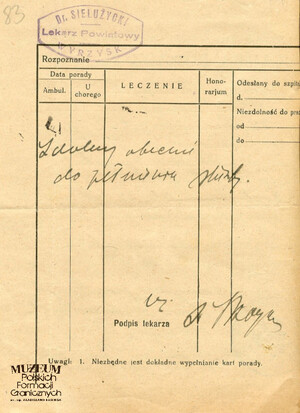 83
Dr. SIELUŻYCKI
Lekarz Powiatowy
WYRZYSK
Rozpoznanie
Data porady
Ambul.
U chorego
LECZENIE
Hono-
rarjum
Odesłany do szpit
d.
Niezdolność do pra
od
do
Zdolny obecnie
do pełnienia służby.
Podpis lekarza
Uwaga: 1. Niezbędne jest dokładne wypełnianie kart porady.
MUZEUM
Polskich
Formacji
Granicznych